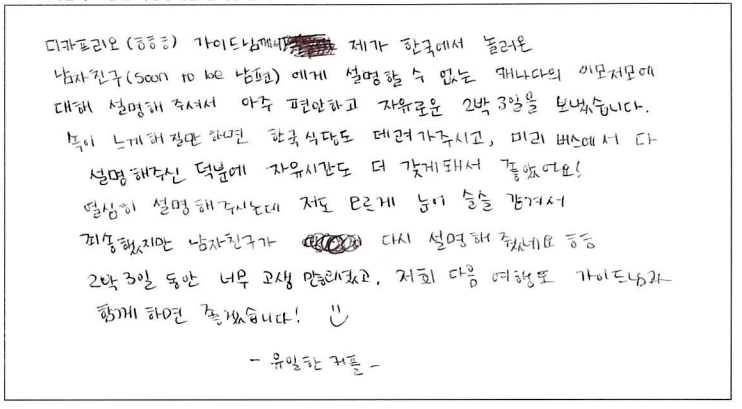 디카프리오 (ㅎㅎㅎ) 가이드님께서 제가 한국에서 놀러온
남자친구 (soon to be 남편) 에게 설명할 수 없는 캐나다의 이모저모에
대해 설명해 주셔서 아주 편안하고 자유로운 2박 3일을 보냈습니다.
속이 느끼해 질만 하면 한국식당도 데려가주시고, 미리 버스에서 다
설명해주신 덕분에 자유시간도 더 갖게돼서 좋았어요!
열심히 설명해주시는데 저도 모르게 눈이 슬슬 감겨서
죄송했지만 남자친구가 다시 설명해 줬네요 ㅎㅎ
2박 3일 동안 너무 고생 많으셨고, 저희 다음 여행도 가이드님과
함께 하면 좋겠습니다!
- 유일한 커플 -